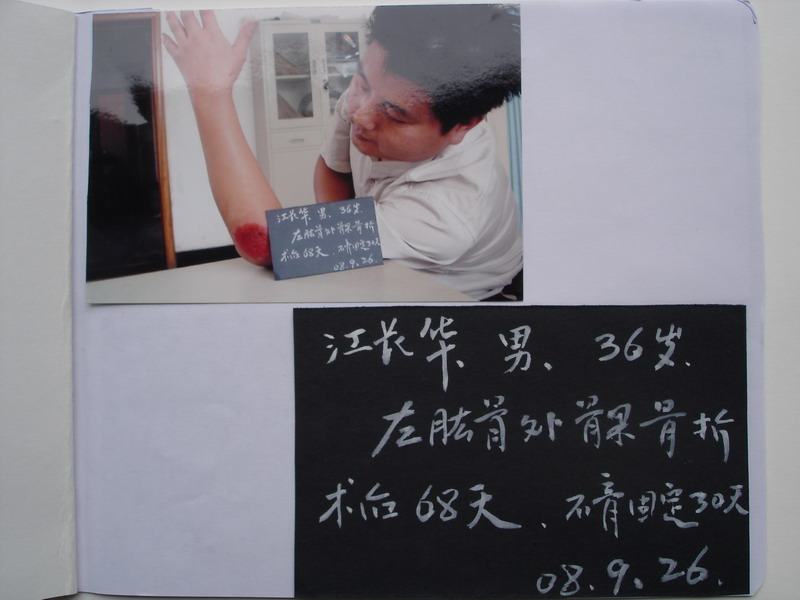 江长华、男、36岁.
左肱骨外髁骨折
术后68天、石膏固定30天
08.9.26
江长华、男、36岁.
左肱骨外髁骨折
术后68天、石膏固定30天
08.9.26.